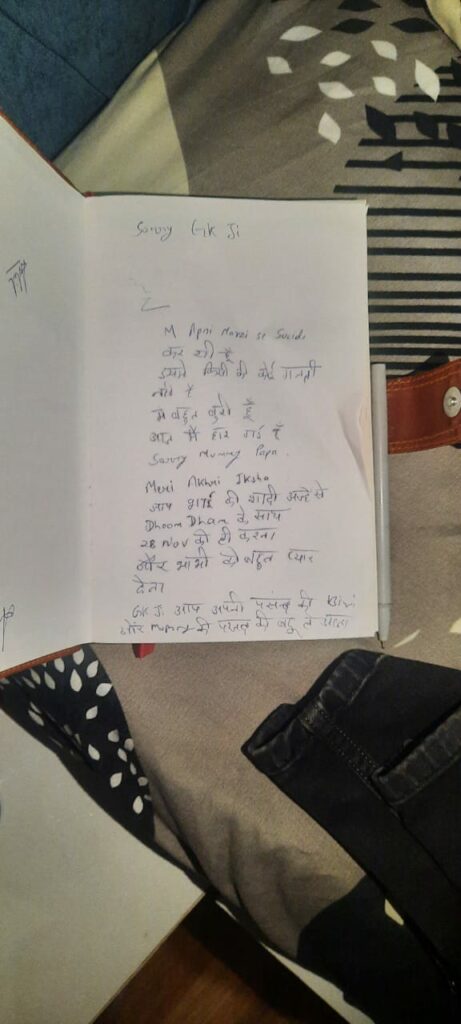 Sorry GK Ji
M Apni Marzi se Sucide
कर रही हूँ
इसमें किसी की कोई गलती
नहीं है
मैं बहुत बुरी हूँ
आज मैं हार गई हूँ
Sorry Mummy Papa.
Meri Akhri Iksha
आप भाई की शादी अच्छे से
Dhoom Dham के साथ
28 Nov को ही करना
और भाभी को बहुत प्यार
देना
GK Ji आप अपनी पसंद की Bivi
और mummy की पसंद की बहू ले आना